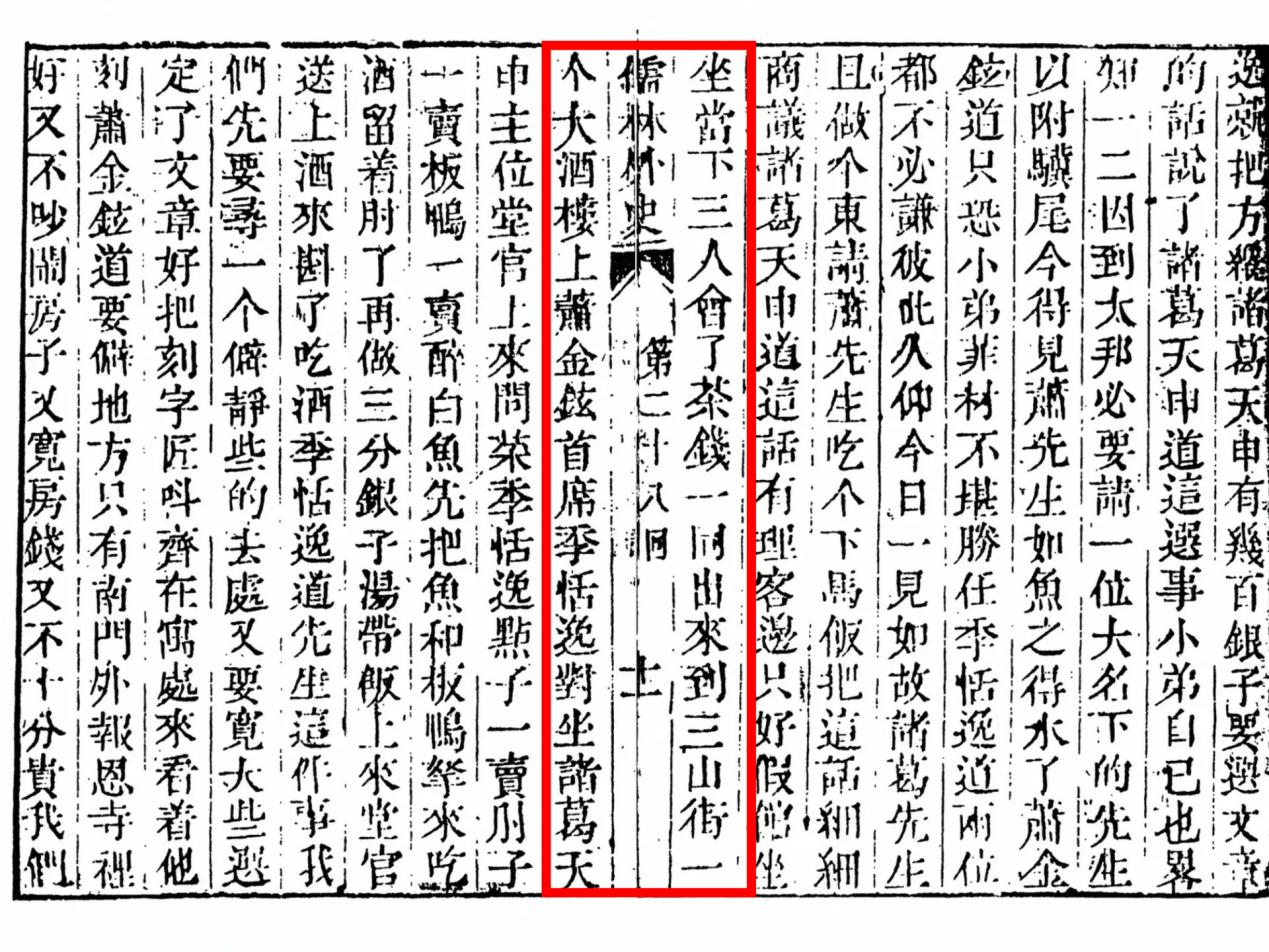 逸就把方纔諸葛天申有幾百銀子要選文章
的話說了諸葛天申道這選事小弟自己也畧
知一二因到大邦必要請一位大名下的先生
以附驥尾今得見蕭先生如魚之得水了蕭金
鉉道只恐小弟菲材不堪勝任季恬逸道兩位
都不必謙彼此久仰今日一見如故諸葛先生
且做个東請蕭先生吃个下馬飯把這話細細
商議諸葛天申道這話有理客邊只好假館坐
坐當下三人會了茶錢一同出來到三山街一
儒林外史 第二十八囘 十一
个大酒樓上蕭金鉉首席季恬逸對坐諸葛天
申主位堂官上來問菜季恬逸點了一賣肘子
一賣板鴨一賣醉白魚先把魚和板鴨拏來吃
酒留着肘子再做三分銀子湯帶飯上來堂官
送上酒來斟了吃酒季恬逸道先生這件事我
們先要尋一个僻靜些的去處又要寬大些選
定了文章好把刻字匠呌齊在寓處來看着他
刻蕭金鉉道要僻地方只有南門外報恩寺裡
好又不吵鬧房子又寬房錢又不十分貴我們